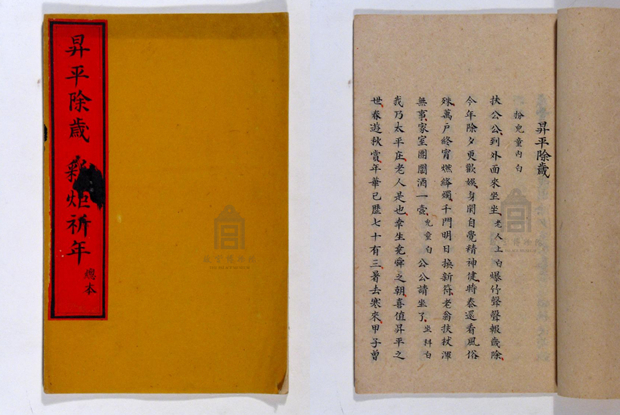 昇平除歲 彩炬祈年
總本
昇平除歲
扮兒童內白
扶公公到外面來坐坐老人上白爆竹聲聲報歲除
今年除夕更歡娛身閒自覺精神健時泰還看風俗
殊萬戶終宵燃絳燭千門明日換新符老翁扶杖渾
無事家室團圞酒一壺兒童白公公請坐了坐科白
我乃太平庄老人是也幸生堯舜之朝喜值昇平之
世春遊秋賞年華已歷七十有三暑去寒來甲子曾